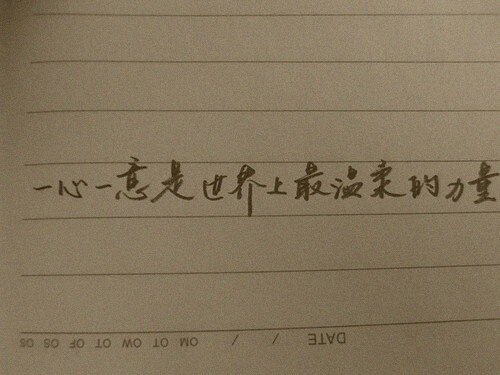 一心一意是世界上最温柔的力量
DATE / /
MO TO WO TO FO SO SO